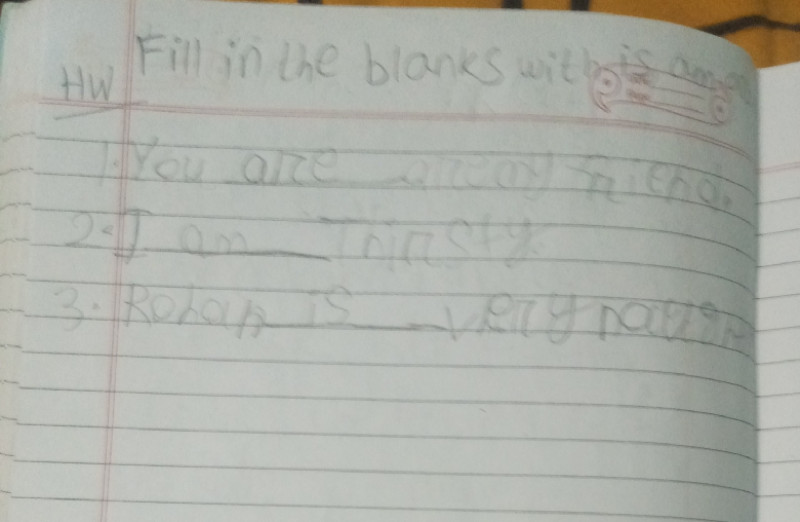 Fill in the blanks with is am
HW
1. You are
2. I am Thirsty
3. Rohan is very